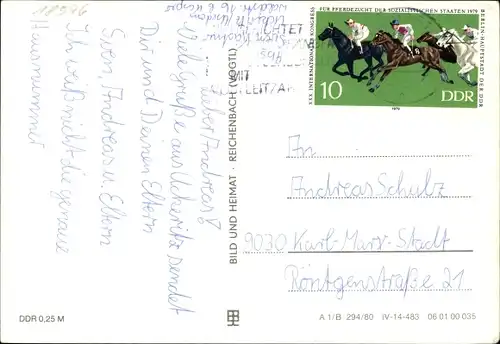 18596
Lieber Andreas!
Viele Grüße aus Ückeritz sendet
Dir und Deinen Eltern
Sven, Andreas u. Eltern
Ich weiß nicht die genaue
Hausnummer
BILD UND HEIMAT · REICHENBACH (VOGTL)
MIT
POSTLEITZAHL
XXX. INTERNATIONALER KONGRESS
FÜR PFERDEZUCHT DER SOZIALISTISCHEN STAATEN 1979
BERLIN-HAUPTSTADT DER DDR
10
DDR
1979
An
Andreas Schulz
9030 Karl-Marx-Stadt
Röntgenstraße 21
DDR 0,25 M
A 1/B 294/80 IV-14-483 06 01 00 035